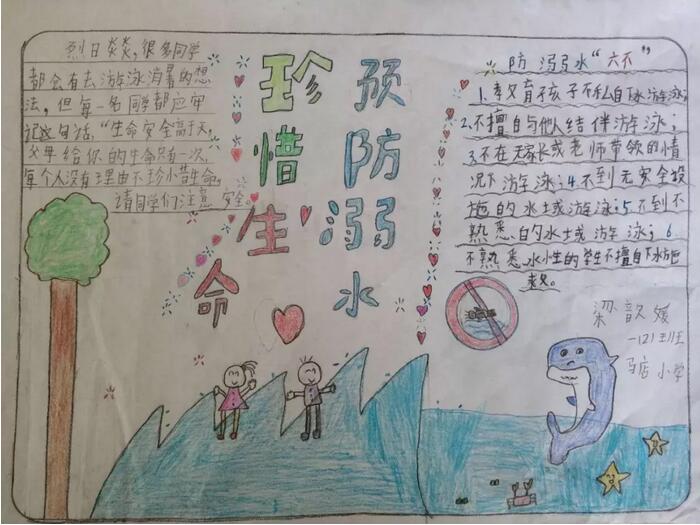 烈日炎炎，很多同学
都会有去游泳消暑的想
法，但每一名同学都应牢
记这句话，"生命安全高于天，
父母给你的生命只有一次，
每个人没有理由不珍惜生命，
请同学们注意安全。
珍惜生命
预防溺水
防溺水"六不"
1.教育孩子不私自下水游泳；
2.不擅自与他人结伴游泳；
3.不在无家长或老师带领的情
况下游泳；4.不到无安全设
施的水域游泳；5.不到不
熟悉的水域游泳；6.
不熟悉水性的学生不擅自下水施
救。
梁歆媛
一(2)班
马店小学